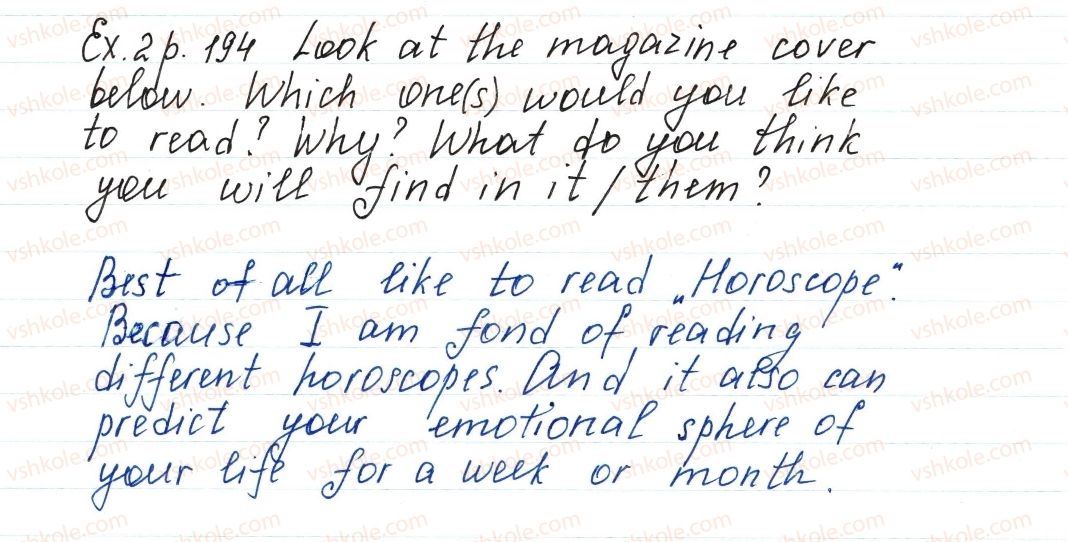 Ex. 2 p. 194 Look at the magazine cover
below. Which one(s) would you like
to read? Why? What do you think
you will find in it / them?
Best of all like to read „Horoscope".
Because I am fond of reading
different horoscopes. And it also can
predict your emotional sphere of
your life for a week or month.